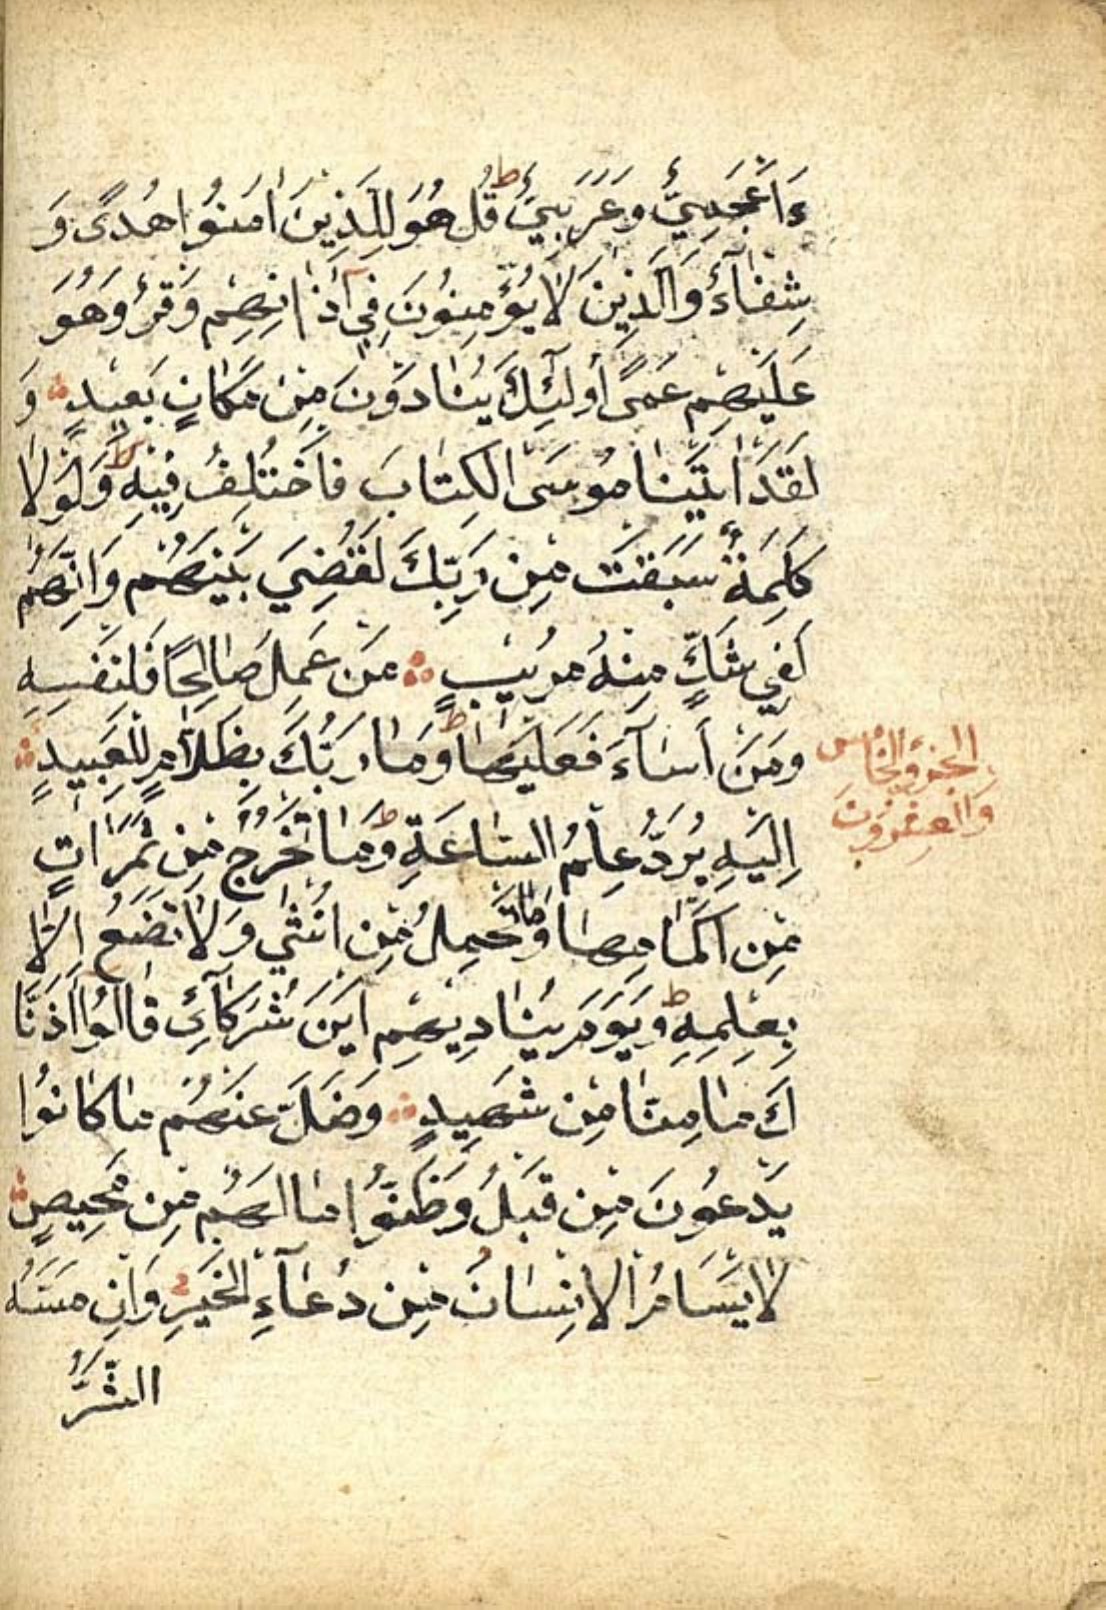 ءَاَعْجَمِيٌّ وَعَرَبِيٌّ ط قُلْ هُوَ لِلَّذِينَ اٰمَنُوا هُدًى وَ
شِفَآءٌ وَالَّذِينَ لَا يُؤْمِنُونَ فِي اٰذَانِهِمْ وَقْرٌ وَهُوَ
عَلَيْهِمْ عَمًى اُولَئِكَ يُنَادَوْنَ مِنْ مَكَانٍ بَعِيدٍ ۞ وَ
لَقَدْ اٰتَيْنَا مُوسَى الْكِتَابَ فَاخْتُلِفَ فِيْهِ ط وَلَوْلَا
كَلِمَةٌ سَبَقَتْ مِنْ رَبِّكَ لَقُضِيَ بَيْنَهُمْ وَاِنَّهُمْ
لَفِي شَكٍّ مِنْهُ مُرِيْبٍ ۞ مَنْ عَمِلَ صَالِحًا فَلِنَفْسِهِ
وَمَنْ اَسَآءَ فَعَلَيْهَا ط وَمَا رَبُّكَ بِظَلَّامٍ لِلْعَبِيدِ ۞
الجزؤ الخامس
والعشرون
اِلَيْهِ يُرَدُّ عِلْمُ السَّاعَةِ ط وَمَا تَخْرُجُ مِنْ ثَمَرَاتٍ
مِنْ اَكْمَامِهَا وَمَا تَحْمِلُ مِنْ اُنْثٰي وَلَا تَضَعُ اِلَّا
بِعِلْمِهِ ط وَيَوْمَ يُنَادِيهِمْ اَيْنَ شُرَكَآئِي قَالُوا اٰذَنَّا
كَ مَا مِنَّا مِنْ شَهِيدٍ ۞ وَضَلَّ عَنْهُمْ مَا كَانُوا
يَدْعُونَ مِنْ قَبْلُ وَظَنُّوا مَا لَهُمْ مِنْ مَحِيصٍ ۞
لَا يَسْاَمُ الْاِنْسَانُ مِنْ دُعَآءِ الْخَيْرِ وَاِنْ مَسَّهُ
الشَّرُّ